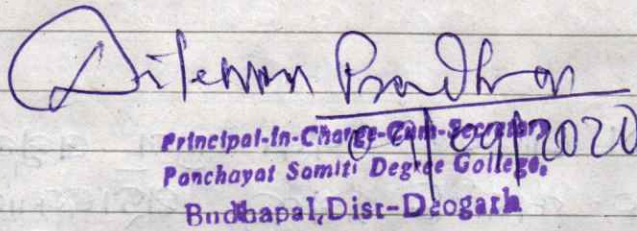 Pradhan
09/09/2020
Principal-in-Charge-Cum-Secretary
Panchayat Samiti Degree College,
Budhapal, Dist-Deogarh